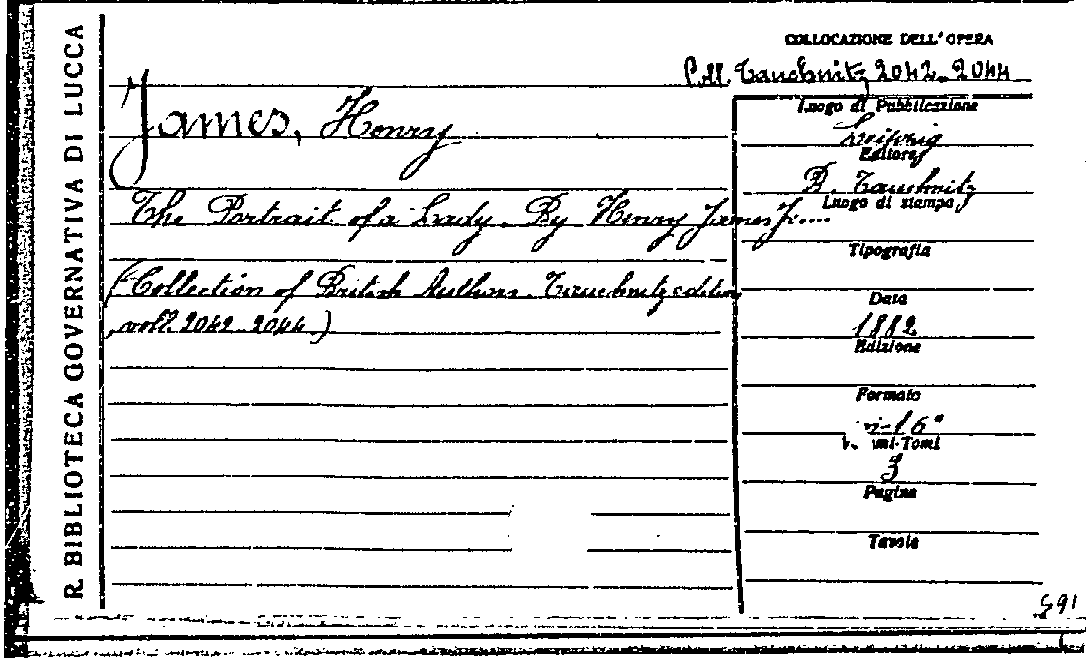 R. BIBLIOTECA GOVERNATIVA DI LUCCA
COLLOCAZIONE DELL'OPERA
Coll. Tauchnitz 2042-2044
James, Henry
The Portrait of a Lady. By Henry James Jr....
(Collection of British Authors. Tauchnitz edition
, voll. 2042-2044.)
Luogo di Pubblicazione
Leipzig
Editore
B. Tauchnitz
Luogo di stampa
Tipografia
Data
1882
Edizione
Formato
in-16°
mi-Tomi
3
Pagine
Tavole